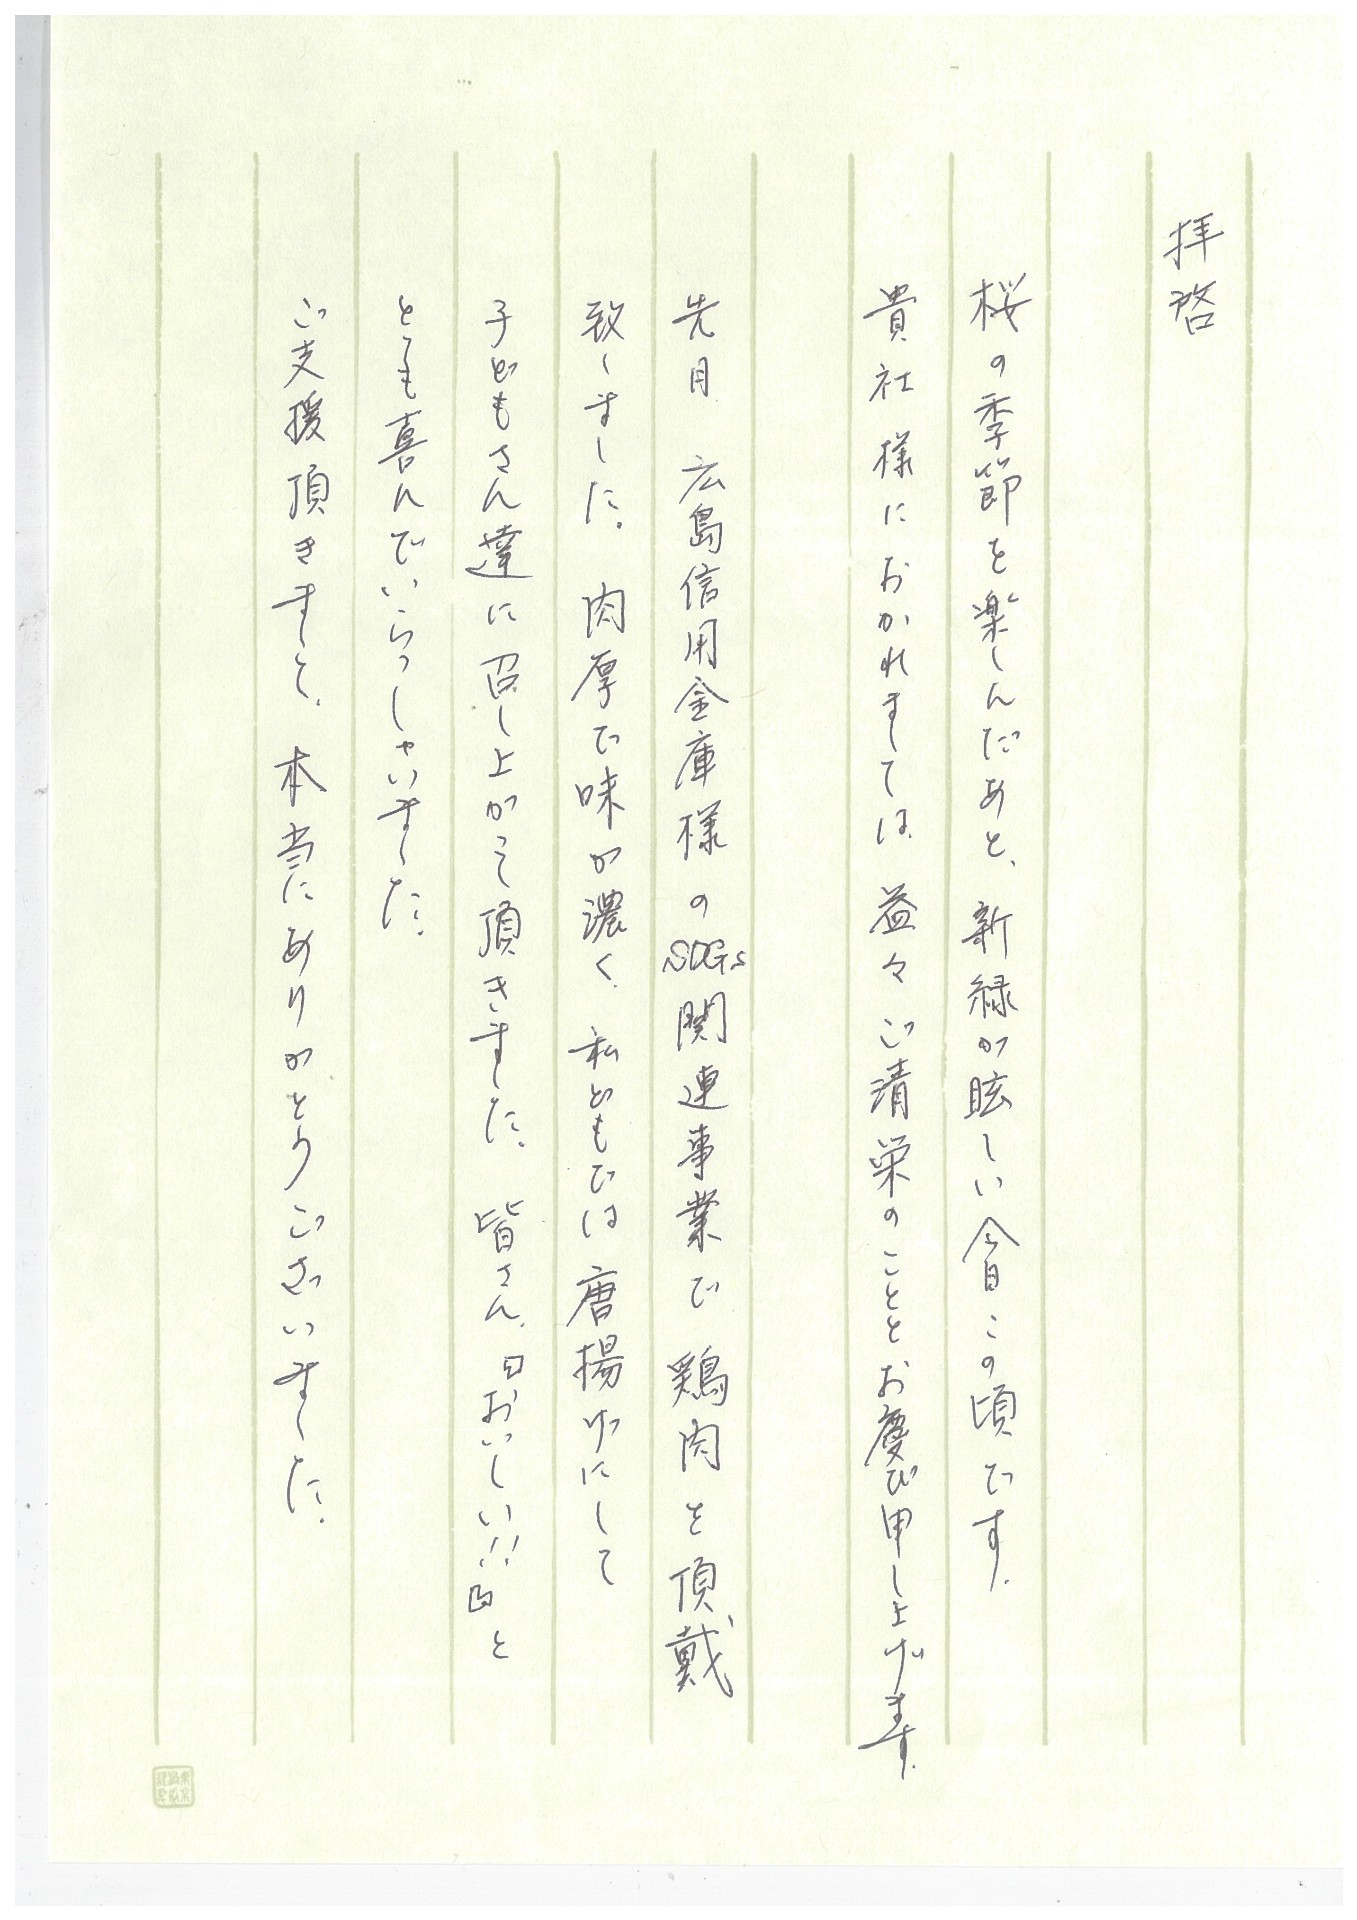 拝啓
桜の季節を楽しんだあと、新緑が眩しい今日この頃です。
貴社様におかれましては、益々ご清栄のこととお慶び申し上げます。
先月 広島信用金庫様のSDGs関連事業で鶏肉を頂戴
致しました。肉厚で味が濃く、私どもでは唐揚げにして
子どもさん達に召し上がって頂きました。皆さん、『おいしい!!』と
とても喜んでいらっしゃいました。
ご支援頂きまして、本当にありがとうございました。